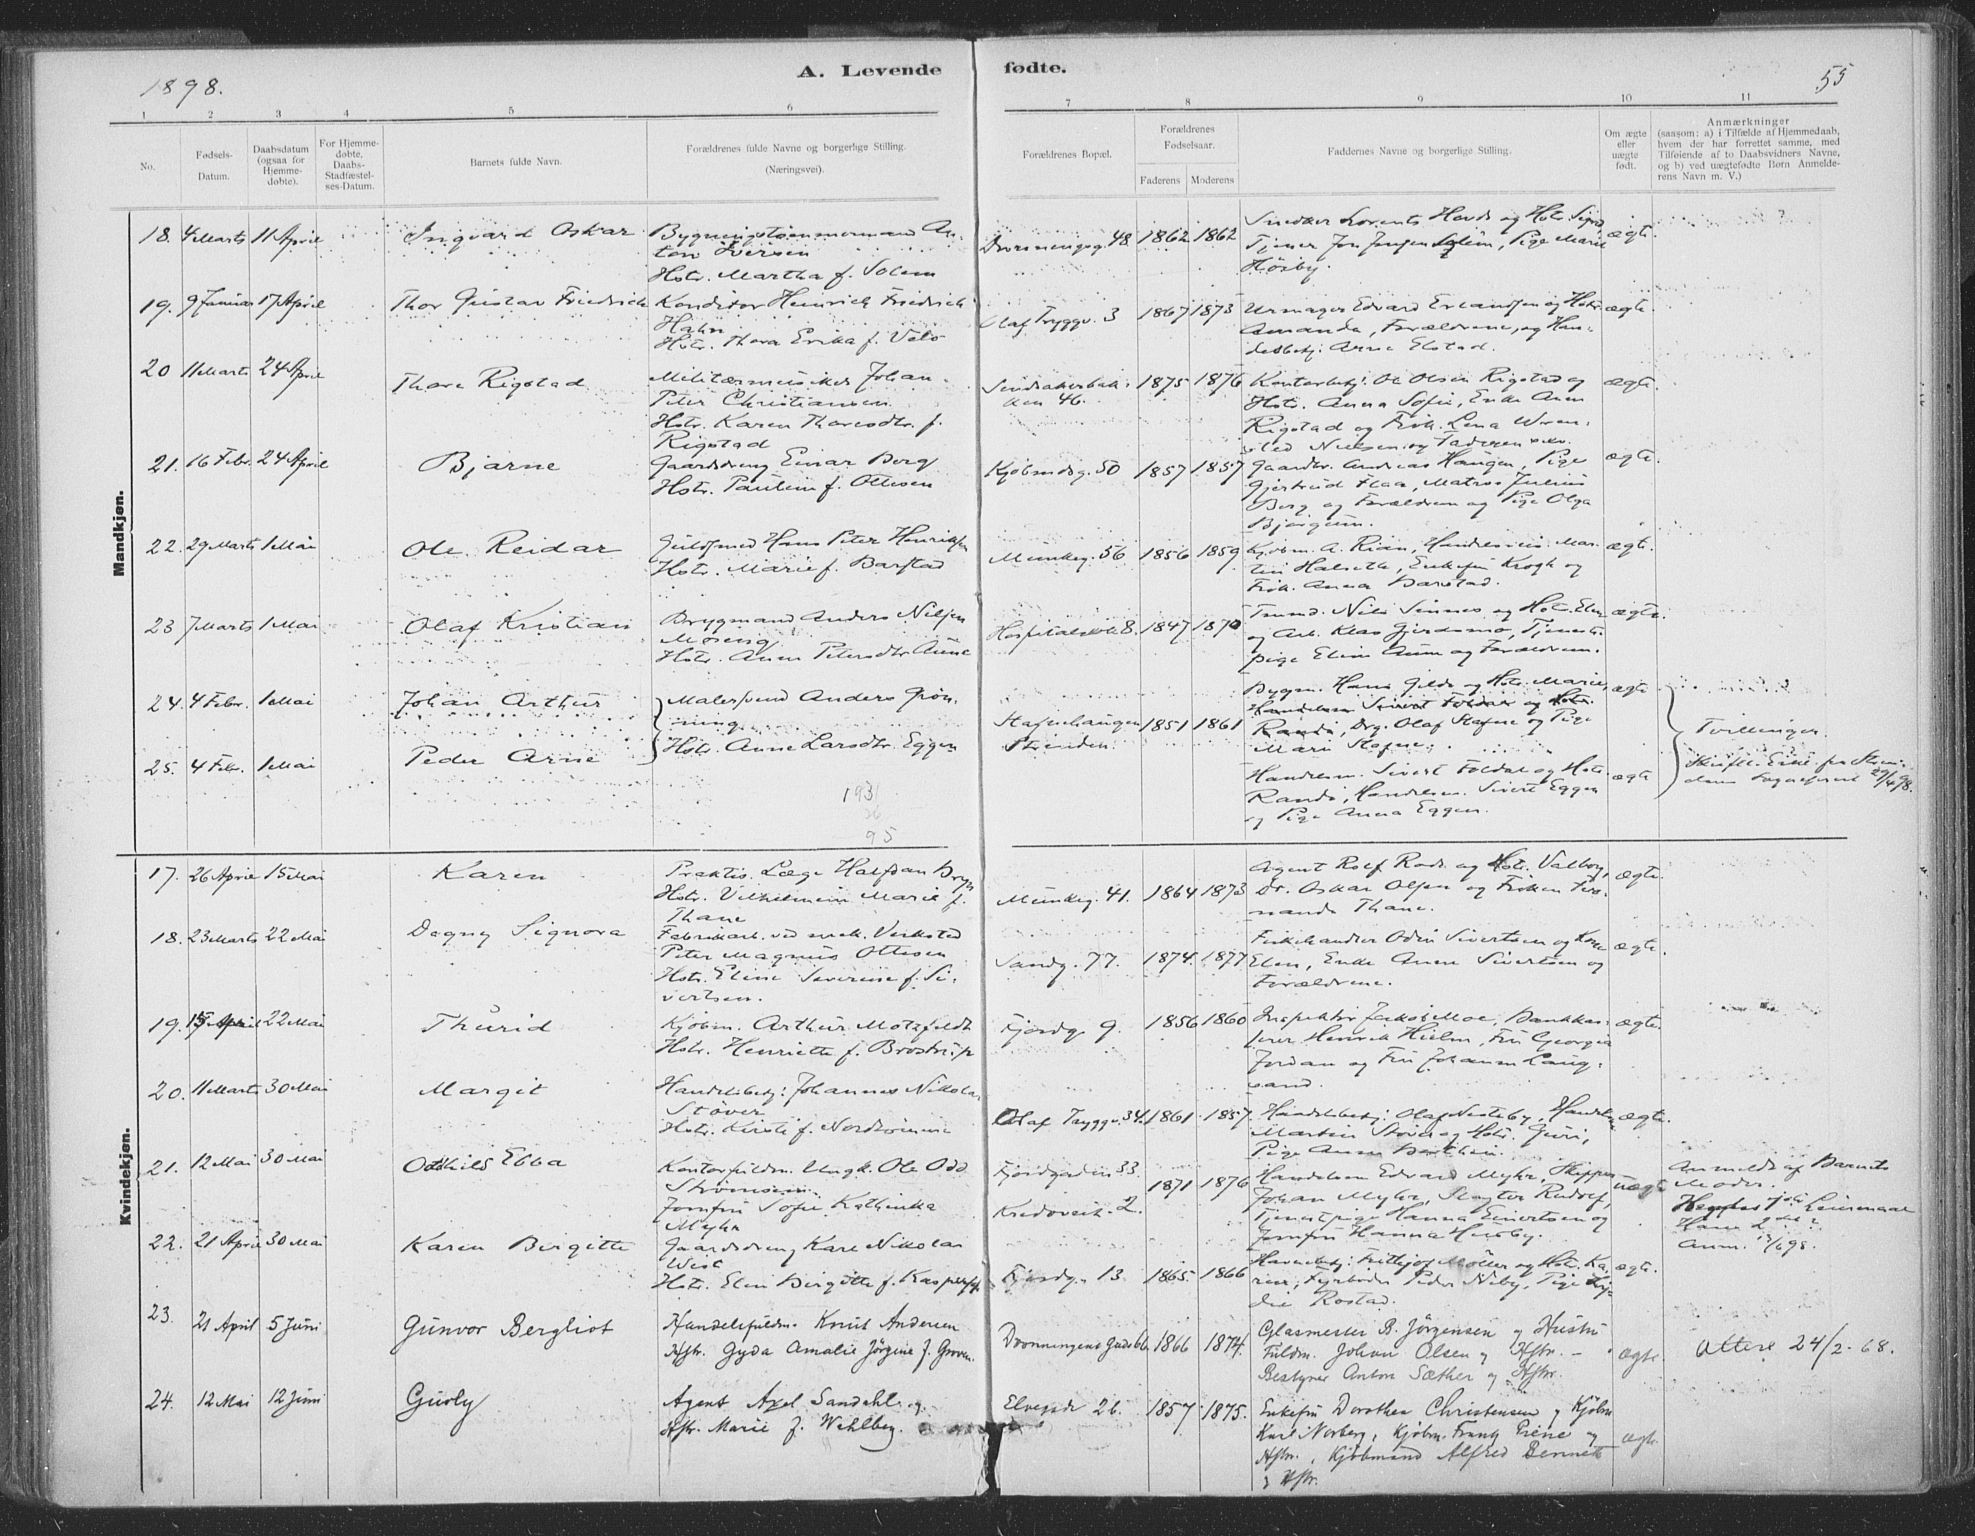 1898.
A. Levende fødte.
55
1 2 3 4 5 6 7 8 9 10 11
No.
Fødsels-Datum.
Daabsdatum (ogsaa for Hjemme-døbte).
For Hjemme-døbte, Daabs-Stadfæstel-ses-Datum.
Barnets fulde Navn.
Forældrenes fulde Navne og borgerlige Stilling.
(Næringsvei).
Forældrenes Bopæl.
Forældrenes Fødselsaar.
Faderens Moderens
Faddernes Navne og borgerlige Stilling.
Om ægte eller uægte født.
Anmærkninger
(saasom: a) i Tilfælde af Hjemmedaab,
hvem der har forrettet samme, med
Tilføiende af to Daabsvidners Navne,
og b) ved uægtefødte Børn Anmelde-
rens Navn m. V.)
Mandkjøn.
18. 4 Marts 11 April Ingvard Oskar Bygningstømmermand An-
ton Iversen
Hstr. Martha f. Solem
Dronningsg. 48 1862 1862 Snedker Lorents Hovde og Hstr. Sigrid
Tjener Jon Jensen Solem, Pige Marie
Høiby. ægte
19. 9 Januar 17 April Thor Gustav Friedrich Konditor Heinrich Friedrich
Hahn
Hstr. Thora Erika f. Velo
Olaf Tryggv. 3 1867 1873 Urmager Edvard Erlandsen og Hstr.
Amanda, Forældrene, og Han-
delsbetj. Arne Elstad. ægte.
20 11 Marts 24 April Thore Rigstad Militærmusiker Johan
Peter Christiansen
Hstr. Karen Thoresdtr. f.
Rigstad
46. 1875 1876 Kontorbetj. Ole Olsen Rigstad og
Hstr. Anna Sofie, Enke Anne
Rigstad og Frk. Lena
Nielsen og Faderen selv. ægte.
21. 16 Febr. 24 April Bjarne Gaardsdreng Einar Berg
Hstr. Pauline f. Ottesen
Kjøbmdsg. 50 1857 1857 Gaardbr. Andreas Haugen, Pige
Gjertrud Flaa, Matros Julius
Berg og Forældrene og Pige Olga
Bjørgum. ægte.
22. 29 Marts 1 Mai Ole Reidar Guldsmed Hans Peter Henriksen
Hstr. Marie f. Barstad
Munkeg. 56 1856 1859 Kjøbm. A. Rian, Mar-
tin Halseth, Enkefru Krogh og
Frk. Anna Barstad. ægte.
23 7 Marts 1 Mai Olaf Kristian Brygmand Anders Nilsen
Moseng
Hstr. Anne Petersdtr. Aune
8. 1847 1870 Nils Sinnes og Hstr. Elen
og Arb. Klas Gjerdsmo, Tjeneste-
pige Elise Aune og Forældrene. ægte.
24. 4 Febr. 1 Mai Johan Arthur Malersvend Anders Grøn-
ning
Hstr. Anne Larsdtr. Eggen
Stafnehaugen
Strinden. 1851 1861 Bygm. Hans Gilde og Hstr. Marie,
Handelsm. Sivert Foldal og Hstr.
Randi, Drg. Olaf Stafne og Pige
Mari Stafne. ægte
Tvillinger.
25. 4 Febr. 1 Mai Peder Arne
Handelsm. Sivert Foldal og Hstr.
Randi, Handelsm. Sivert Eggen
og Pige Anna Eggen. ægte
Skriftl. fra Strin-
dens Sogneprest 29/4 98.
1931
36
95
Kvindekjøn.
17. 26 April 15 Mai Karen Praktis. Læge Halfdan Bryn
Hstr. Vilhelmine Marie f.
Thane
Munkeg. 41. 1864 1873 Agent Rolf Rode og Hstr. Valborg,
Dr. Oskar Olsen og Frøken Fer-
nanda Thane. ægte.
18. 23 Marts 22 Mai Dagny Signora Fabrikarb. ved mek. Verksted
Peter Magnus Ottesen
Hstr. Eline Severine f. Si-
vertsen.
Sandg. 77. 1874. 1877 Fiskehandler Odin Sivertsen og Kone
Elen, Enke Anne Sivertsen og
Forældrene. ægte.
19. 15 April 22 Mai Thurid Kjøbm. Arthur Motzfeldt
Hstr. Henriette f. Brostrøp
Fjordg. 9. 1856 1860 Inspektør Jakob Moe, Bankkas-
serer Henrik Hielm, Fru Georgia
Jordan og Fru Johanne Laug-
sand. ægte.
20. 11 Marts 30 Mai Margit Handelsbetj: Johannes Nikolai
Støver
Hstr. Kirsti f. Nordtømme
Olaf Tryggv. 34. 1861 1857 Handelsbetj: Olaf Nesteby, Handelsm.
Martin Støver og Hstr. Guri,
Pige Anna Berthin. ægte.
21. 12 Mai 30 Mai Oddhild Ebba Kontorfuldm. Ungk. Ole Odd
Strømsem
Jomfru Sofie Kathinka
Myhr
Fjordgaden 33
2. 1871 1876 Handelsm Edvard Myhr, Skipper
Johan Myhr, Slagter Rudolf,
Tjenestpige Hanna Sivertsen og
Jomfru Hanna Husby. uægte
Anmeldt af Barnets
Moder.
Leiermaal
Hans 2det
Anm. 13/6 98.
22. 21 April 30 Mai Karen Birgitte Gaardsdreng Karl Nikolai
West
Hstr. Elen Birgitte f. Kaspersen
Fjordg. 13 1865. 1866 Havnebetj: Frithjof Møller og Hstr. Ka-
rine, Fyrbøder Peder Neby, Pige
Rostad. ægte.
23. 21 April 5 Juni Gunvor Bergliot Handelsfuldm. Knut Andersen
Hstr. Gyda Amalie Jörgine f. Groven
Dronningens Gade 66 1866 1874. Glasmester B. Jörgensen og Hustru
Fuldm. Johan Olsen og Hstr. –
Bestyrer Anton Sæther og Hstr. ægte.
Attest 24/2-68.
24. 12 Mai 12 Juni Guvly Agent Axel Sandahl og
Hstr. Marie f. Wehlberg.
Elvegade 26. 1857 1875. Enkefru Dorothea Christensen og Kjöbm
Karl Norberg, Kjöbm. Frantz Piene og
Hstr., Kjöbmand Alfred Bennett
og Hstr. ægte.